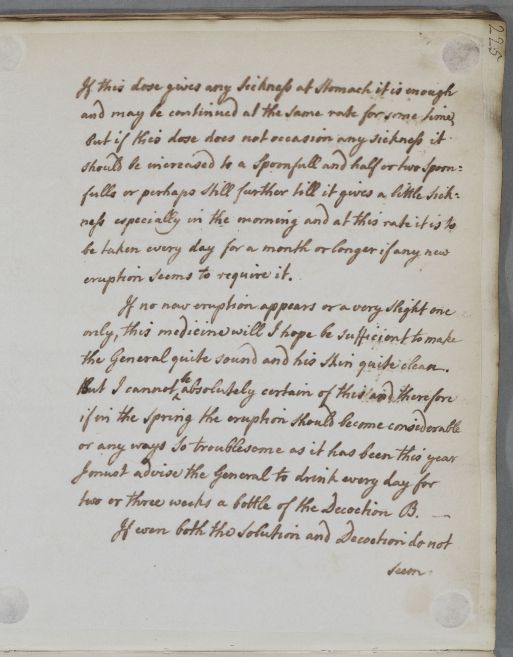 225
If this dose gives any Sickness at Stomach it is enough
and may be continued at the same rate for some time,
but if this dose does not occasion any sickness it
should be increased to a Spoonfull and half or two Spoon=
fulls or perhaps still further till it gives a little Sick=
ness especially in the morning and at this rate it is to
be taken every day for a month or longer if any new
eruption seems to require it.
If no new eruption appears or a very slight one
only, this medicine will I hope be sufficient to make
the General quite sound and his skin quite clean.
But I cannot be absolutely certain of this and therefore
if in the Spring the eruption should become considerable
or any ways so troublesome as it has been this year
I must advise the General to drink every day for
two or three weeks a bottle of the Decoction B. —
If even both the Solution and Decoction do not
seem